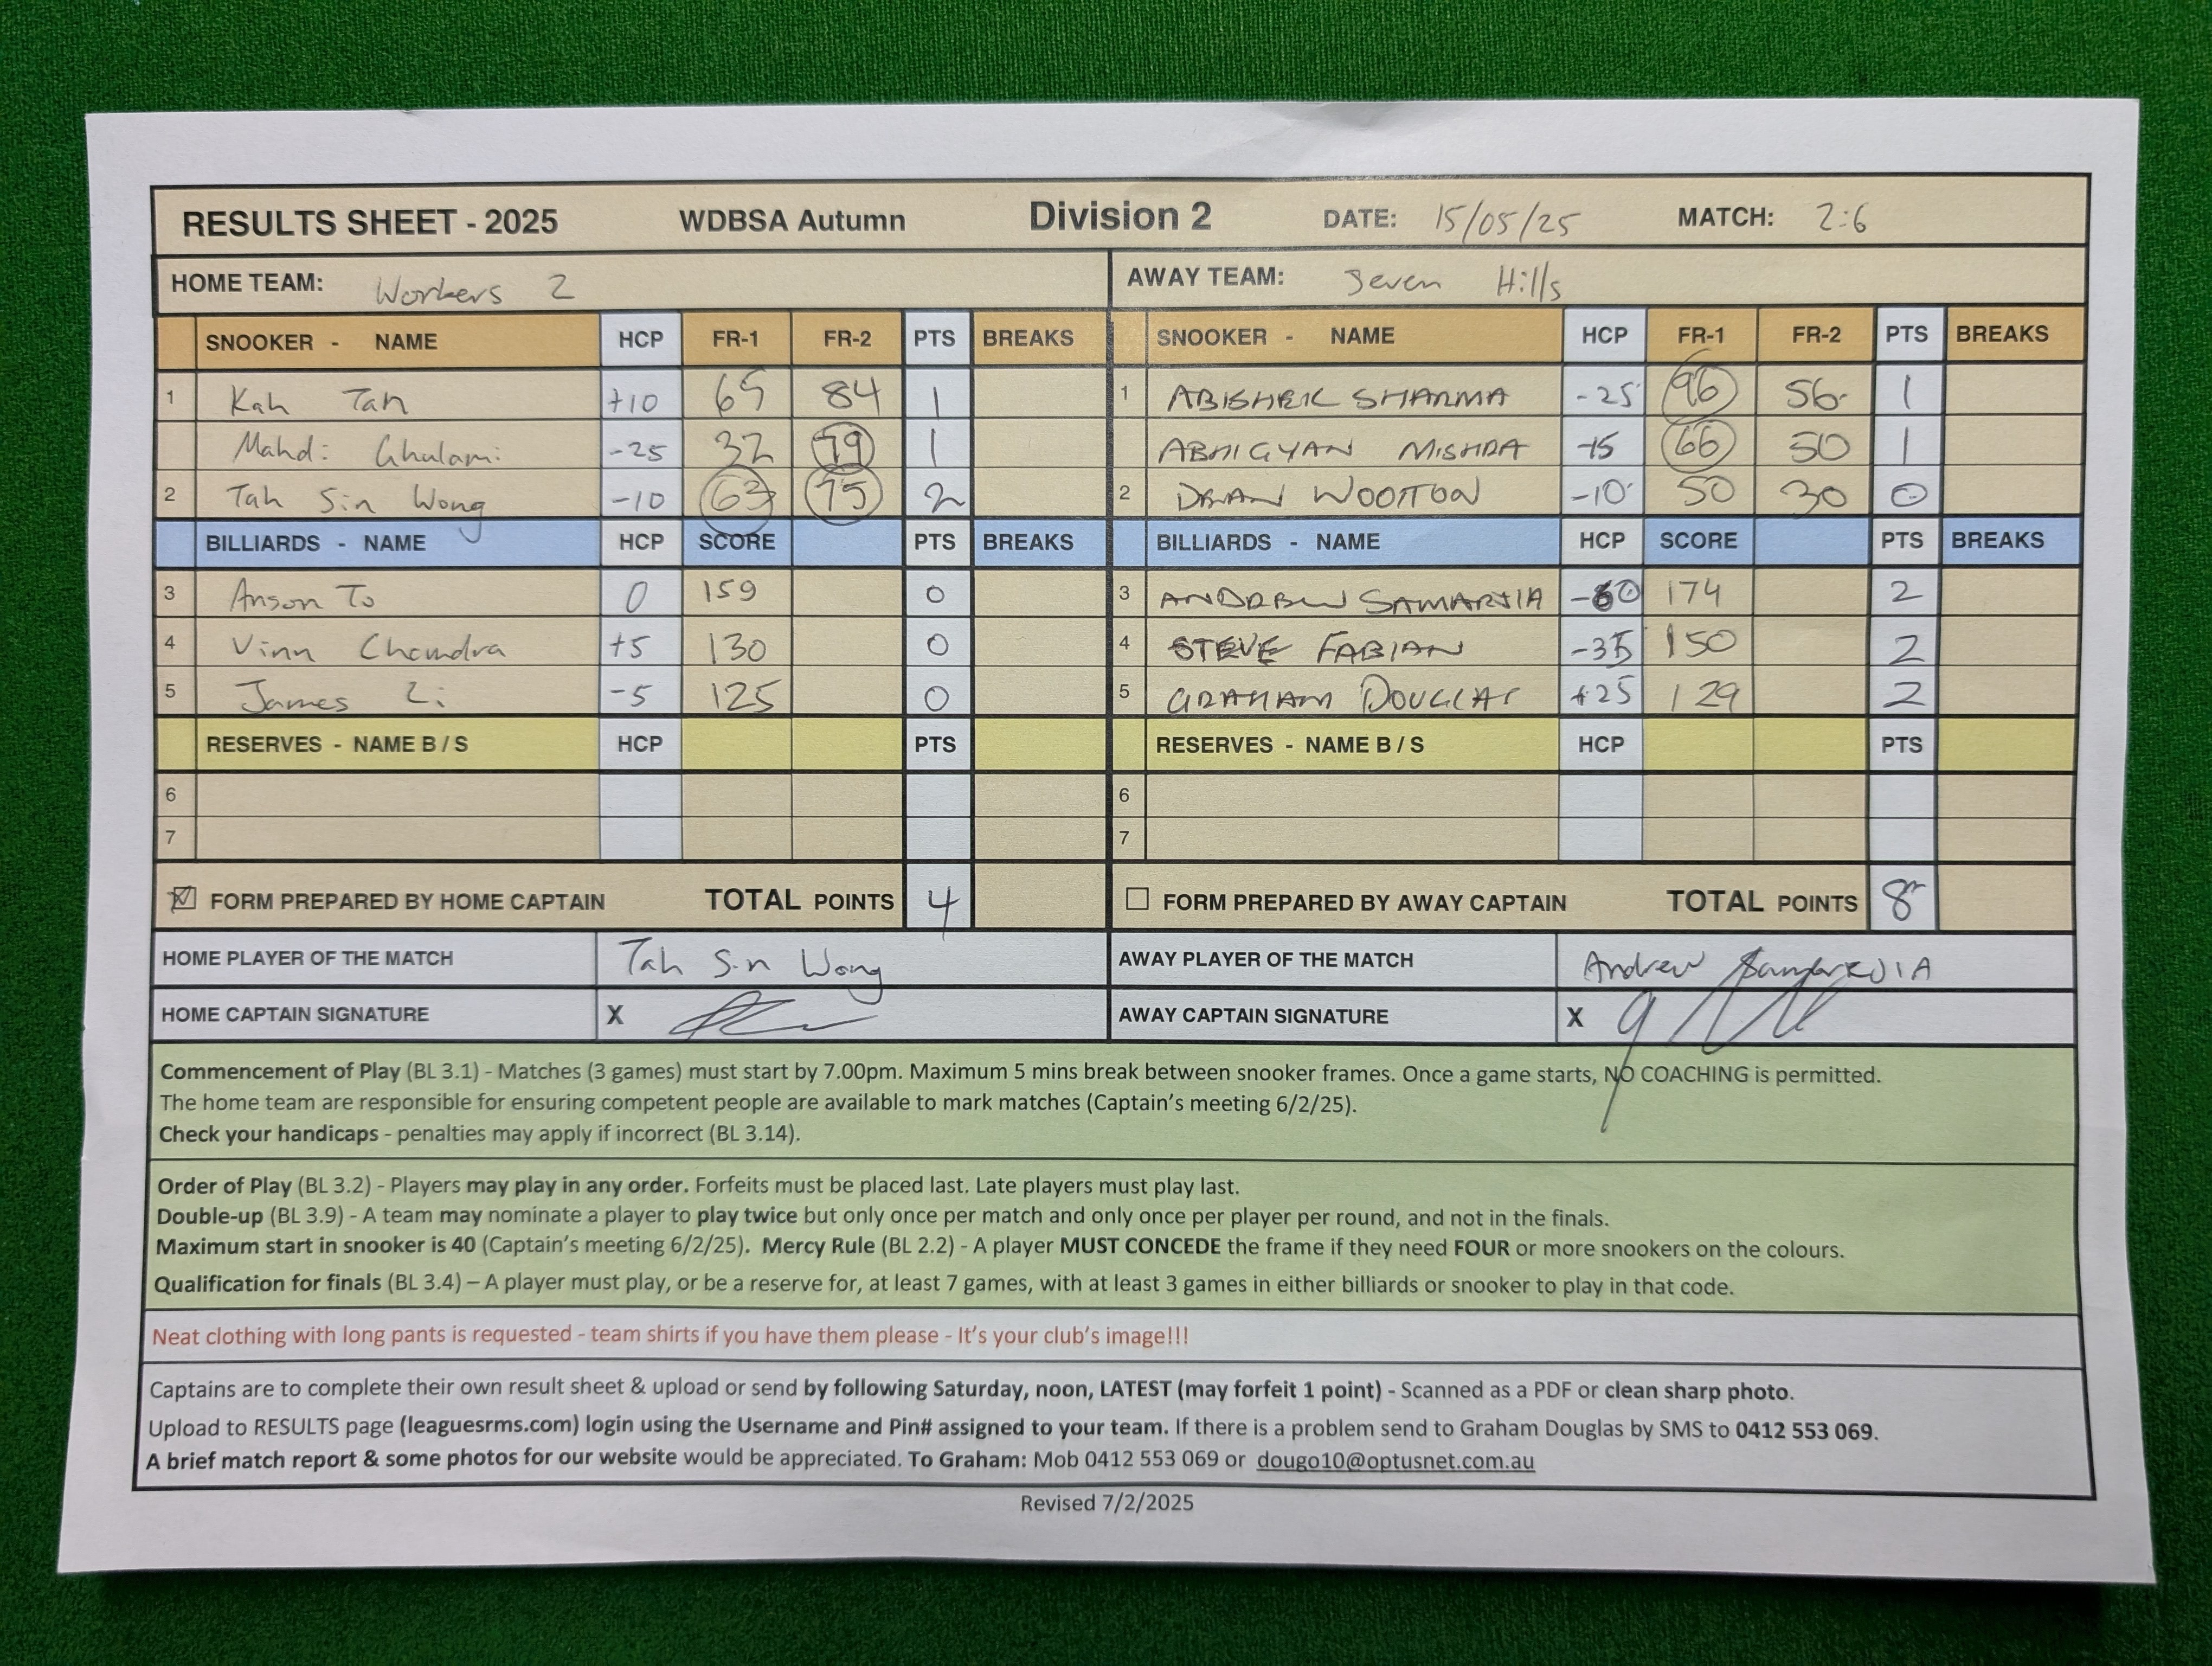 RESULTS SHEET - 2025 WDBSA Autumn Division 2 DATE: 15/05/25 MATCH: 2:6
HOME TEAM: Workers 2 AWAY TEAM: Seven Hills
SNOOKER - NAME HCP FR-1 FR-2 PTS BREAKS SNOOKER - NAME HCP FR-1 FR-2 PTS BREAKS
1 Kah Tan +10 65 84 1 1 ABISHEK SHARMA -25 96 56 1
Mahdi Ghulami -25 32 79 1 ABHIGYAN MISHRA +5 66 50 1
2 Tah Sin Wong -10 63 75 2 2 WOOTTON -10 50 30 0
BILLIARDS - NAME HCP SCORE PTS BREAKS BILLIARDS - NAME HCP SCORE PTS BREAKS
3 Anson To 0 159 0 3 ANDREW SAMARJIA -60 174 2
4 Vinn Chandra +5 130 0 4 STEVE FABIAN -35 150 2
5 James Li -5 125 0 5 GRAHAM DOUGLAS +25 129 2
RESERVES - NAME B / S HCP PTS RESERVES - NAME B / S HCP PTS
6 6
7 7
FORM PREPARED BY HOME CAPTAIN TOTAL POINTS 4 FORM PREPARED BY AWAY CAPTAIN TOTAL POINTS 8
HOME PLAYER OF THE MATCH Tah Sin Wong AWAY PLAYER OF THE MATCH Andrew
HOME CAPTAIN SIGNATURE X AWAY CAPTAIN SIGNATURE X
Commencement of Play (BL 3.1) - Matches (3 games) must start by 7.00pm. Maximum 5 mins break between snooker frames. Once a game starts, NO COACHING is permitted.
The home team are responsible for ensuring competent people are available to mark matches (Captain's meeting 6/2/25).
Check your handicaps - penalties may apply if incorrect (BL 3.14).
Order of Play (BL 3.2) - Players may play in any order. Forfeits must be placed last. Late players must play last.
Double-up (BL 3.9) - A team may nominate a player to play twice but only once per match and only once per player per round, and not in the finals.
Maximum start in snooker is 40 (Captain's meeting 6/2/25). Mercy Rule (BL 2.2) - A player MUST CONCEDE the frame if they need FOUR or more snookers on the colours.
Qualification for finals (BL 3.4) – A player must play, or be a reserve for, at least 7 games, with at least 3 games in either billiards or snooker to play in that code.
Neat clothing with long pants is requested - team shirts if you have them please - It's your club's image!!!
Captains are to complete their own result sheet & upload or send by following Saturday, noon, LATEST (may forfeit 1 point) - Scanned as a PDF or clean sharp photo.
Upload to RESULTS page (leaguesrms.com) login using the Username and Pin# assigned to your team. If there is a problem send to Graham Douglas by SMS to 0412 553 069.
A brief match report & some photos for our website would be appreciated. To Graham: Mob 0412 553 069 or dougo10@optusnet.com.au
Revised 7/2/2025